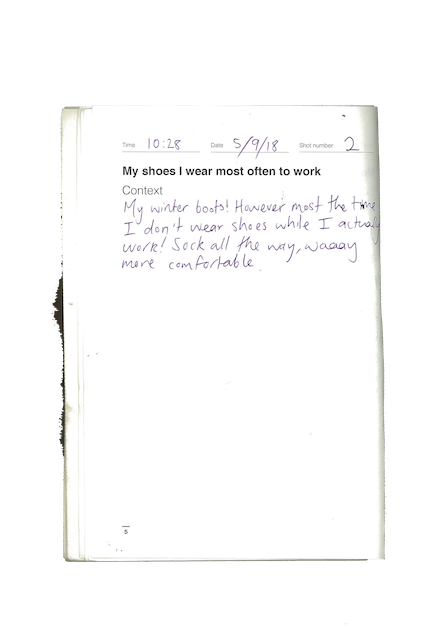 Time 10:28 Date 5/9/18 Shot number 2
My shoes I wear most often to work
Context
My winter boots! However most the time
I don't wear shoes while I actually
work! Sock all the way, waaay
more comfortable.
5